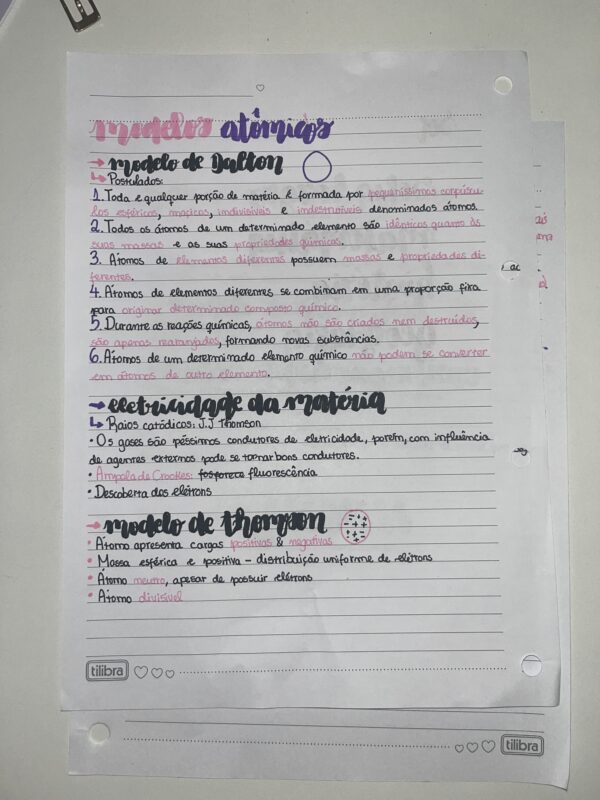 modelos atômicos
→ modelo de Dalton
↳ Postulados:
1. Toda e qualquer porção de matéria é formada por pequeníssimos corpúscu-
los esféricos, maciços, indivisíveis e indestrutíveis denominados átomos.
2. Todos os átomos de um determinado elemento são idênticos quanto às
suas massas e as suas propriedades químicas.
3. Átomos de elementos diferentes possuem massas e propriedades di-
ferentes.
4. Átomos de elementos diferentes se combinam em uma proporção fixa
para originar determinado composto químico.
5. Durante as reações químicas, átomos não são criados nem destruídos,
são apenas rearranjados, formando novas substâncias.
6. Átomos de um determinado elemento químico não podem se converter
em átomos de outro elemento.
→ eletricidade da matéria
↳ Raios catódicos: J.J Thomson
• Os gases são péssimos condutores de eletricidade, porém, com influência
de agentes externos pode se tornar bons condutores.
• Ampola de Crookes: fosforece fluorescência
• Descoberta dos elétrons
→ modelo de thomson
• Átomo apresenta cargas positivas & negativas
• Massa esférica e positiva – distribuição uniforme de elétrons
• Átomo neutro, apesar de possuir elétrons
• Átomo divisível
tilibra
tilibra